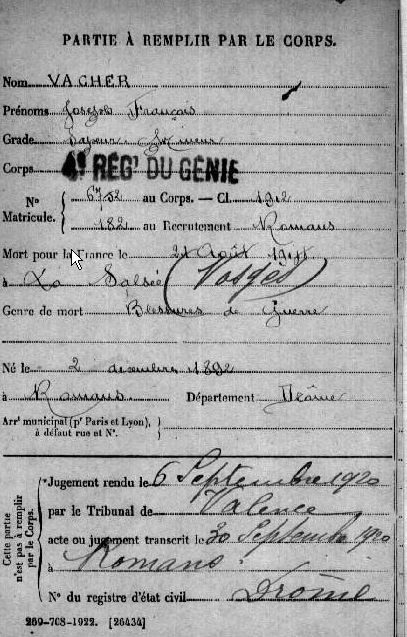 PARTIE À REMPLIR PAR LE CORPS.
Nom VACHER
Prénoms Joseph François
Grade Sapeur Mineur
Corps 4e RÉGt DU GÉNIE
Nº Matricule. { 6752 au Corps. — Cl. 1912
182 au Recrutement Romans
Mort pour la France le 21 Août 1914
à La Salsée (Vosges)
Genre de mort Blessures de Guerre
Né le 2 décembre 1892
à Romans Département Drôme
Arrt municipal (pr Paris et Lyon), }
à défaut rue et Nº.
Cette partie n'est pas à remplir par le Corps.
Jugement rendu le 6 Septembre 1920
par le Tribunal de Valence
acte ou jugement transcrit le 30 Septembre 1920
à Romans
Nº du registre d'état civil Drôme
269-708-1922. [26434]